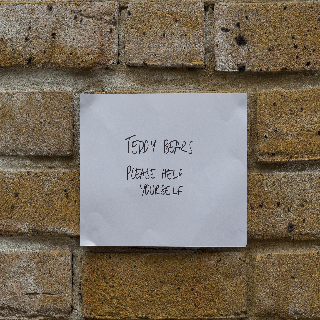 TEDDY BEARS
PLEASE HELP
YOURSELF